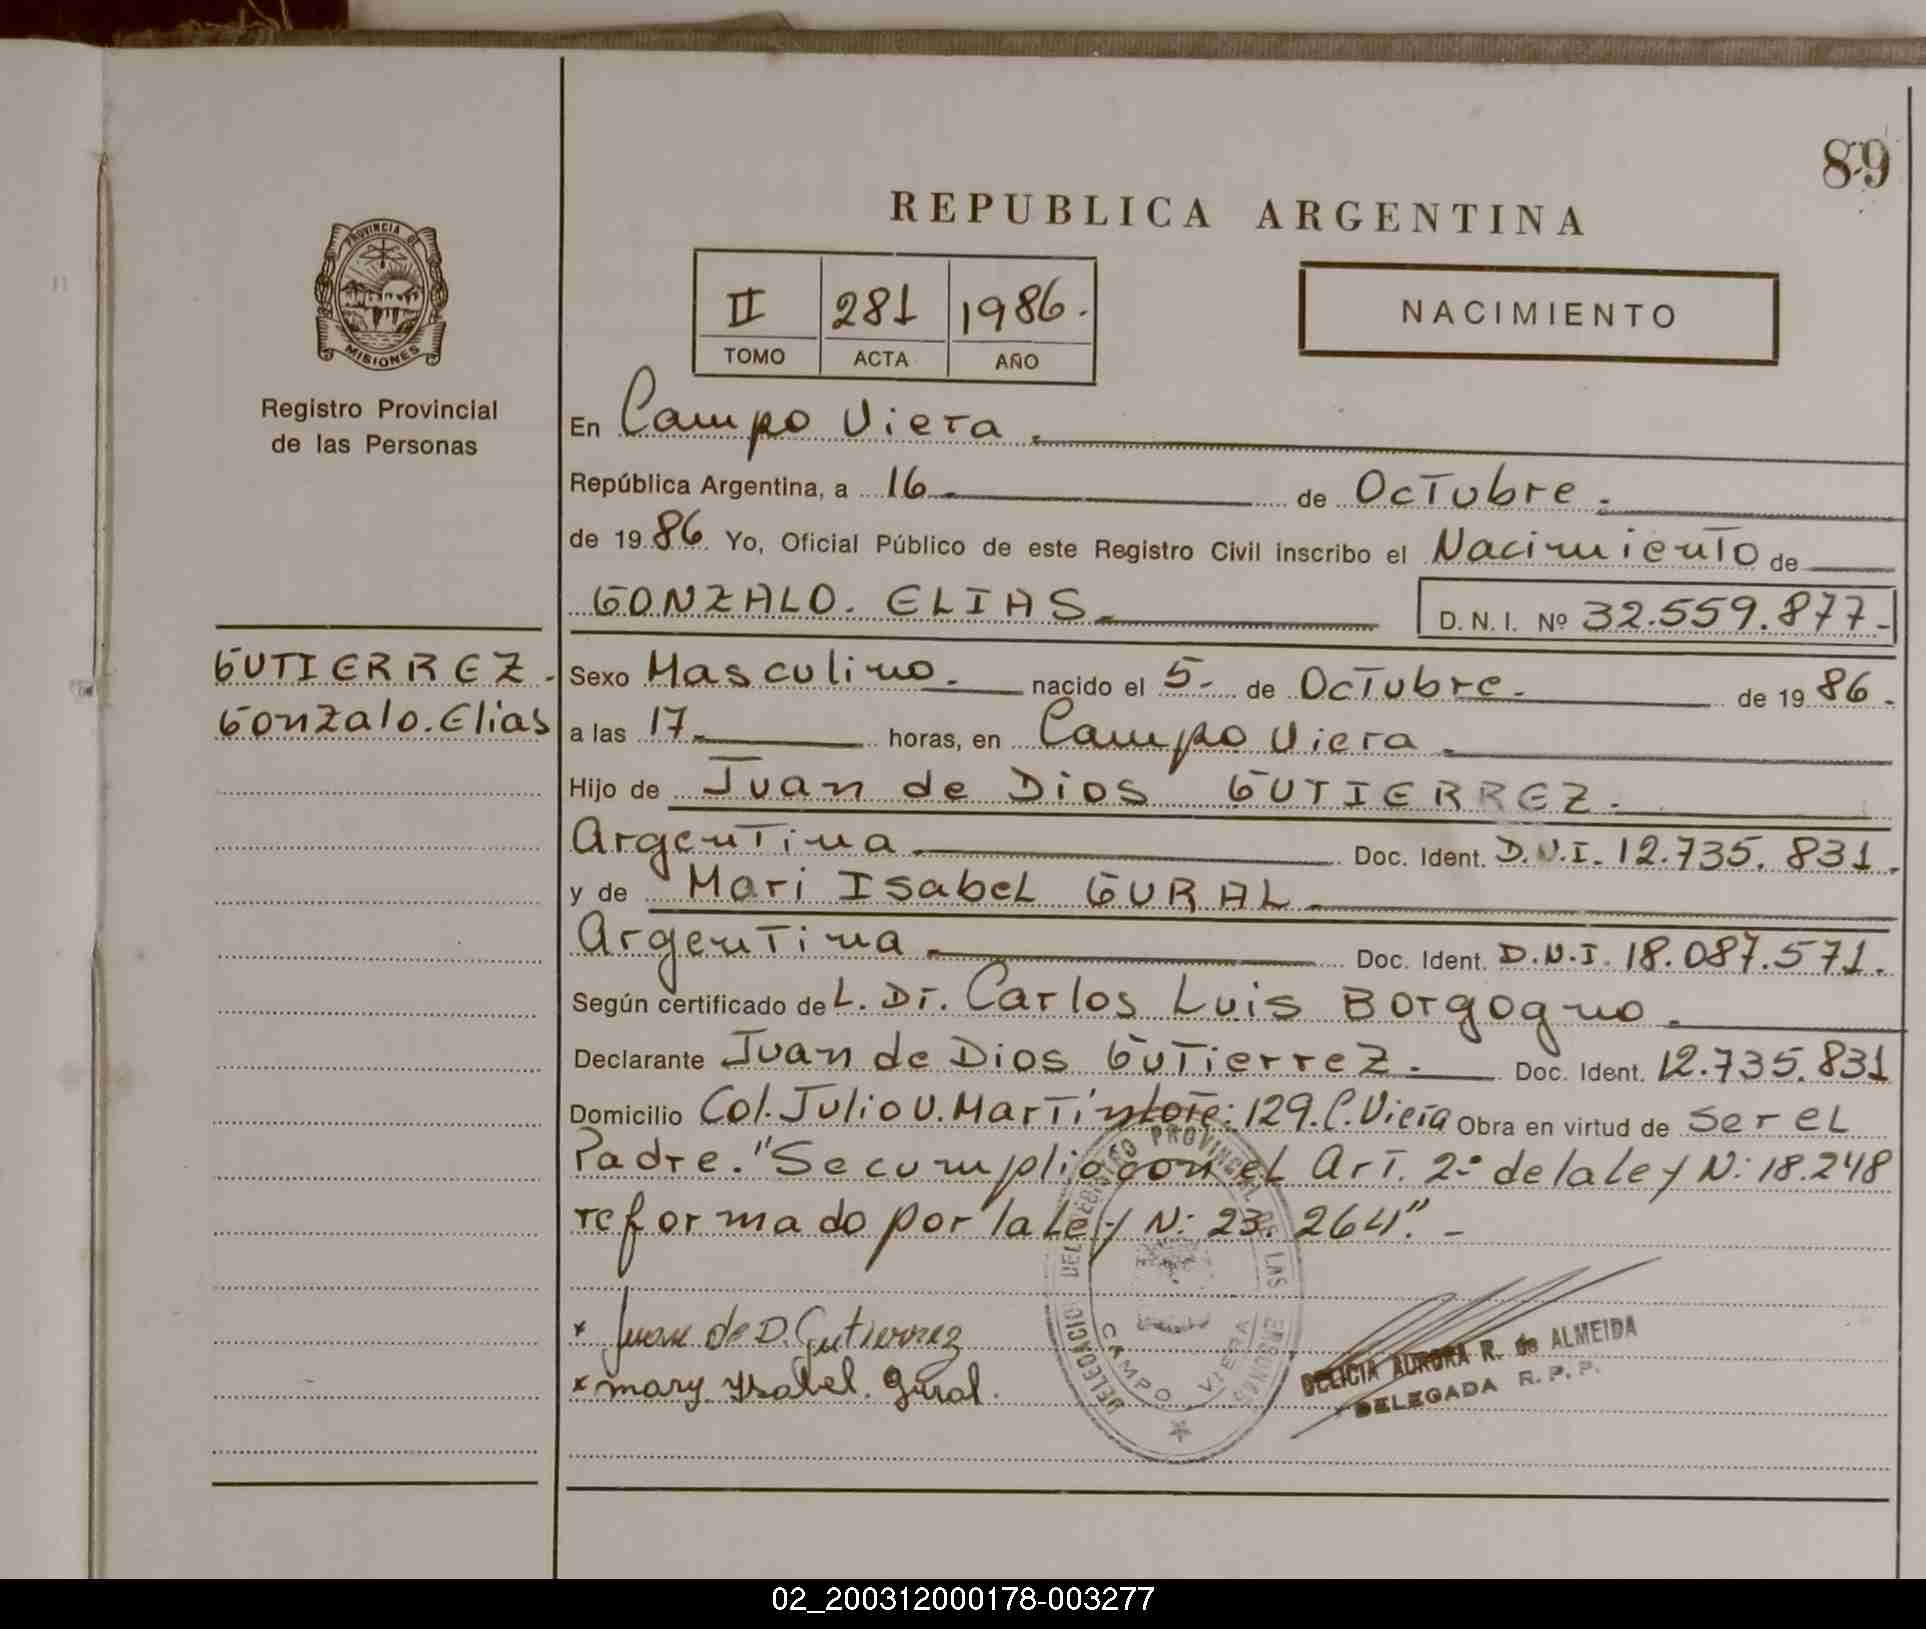 89
REPUBLICA ARGENTINA
PROVINCIA DE
MISIONES
II 281 1986.
TOMO ACTA AÑO
NACIMIENTO
Registro Provincial
de las Personas
En Campo Viera.
República Argentina, a 16 de Octubre.
de 1986 Yo, Oficial Público de este Registro Civil inscribo el Nacimiento de
GONZALO. ELIAS. D. N. I. Nº 32.559.877.-
GUTIERREZ.
Gonzalo. Elias
Sexo Masculino. nacido el 5- de Octubre. de 1986.
a las 17. horas, en Campo Viera.
Hijo de Juan de Dios GUTIERREZ.
Argentina. Doc. Ident. D.N.I. 12.735.831.
y de Mari Isabel GURAL.
Argentina. Doc. Ident. D.N.I. 18.087.571.
Según certificado de L. Dr. Carlos Luis Borgogno.
Declarante Juan de Dios Gutierrez. Doc. Ident. 12.735.831
Domicilio Col. Julio U. Martin Lote: 129. C. Viera Obra en virtud de ser el
Padre. "Se cumplió con el Art. 2º de la Ley N: 18.248
reformado por la Ley N: 23.264". -
x Juan de D. Gutierrez
x mary ysabel. gural.
DELEGACIO DEL REGISTRO PROVINCIAL DE LAS PERSONAS
CAMPO VIERA
DELICIA AURORA R. de ALMEIDA
DELEGADA R. P. P.
02_200312000178-003277